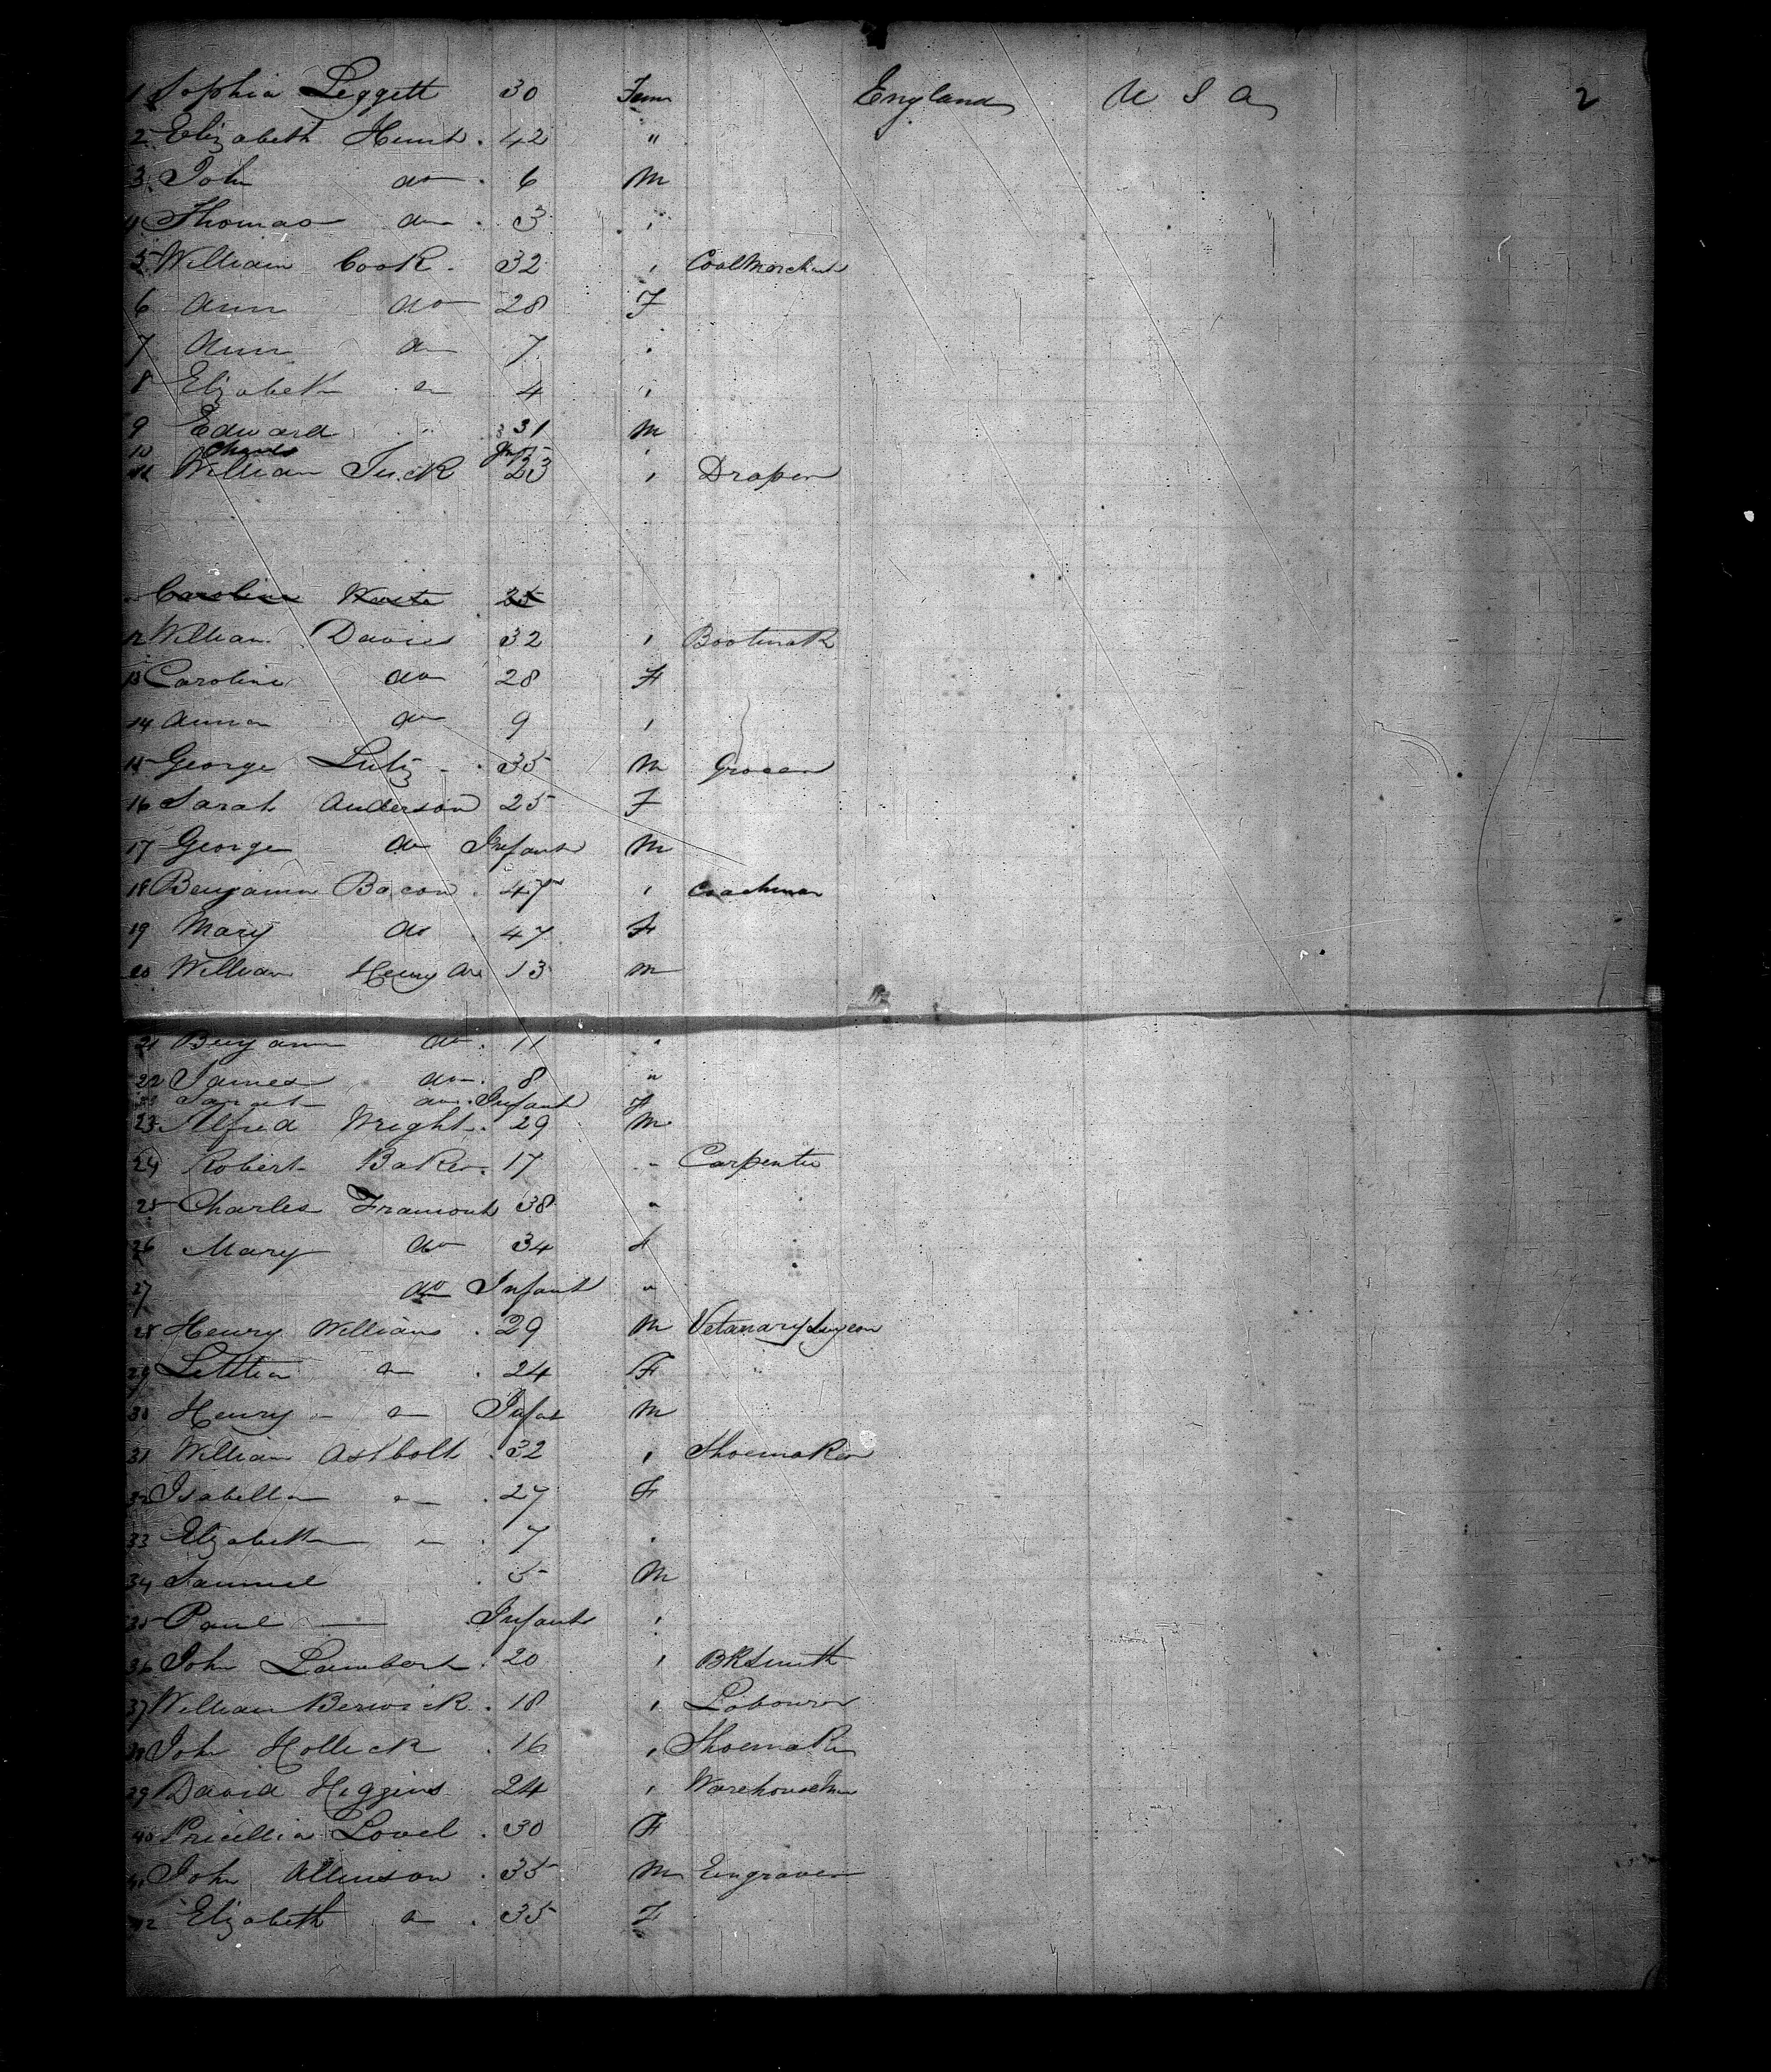 1 Sophia Leggett 30 Fem England U S A 2
2 Elizabeth Hunt . 42 "
3 John do . 6 M
4 Thomas do . 3 "
5 William Cook . 32 " Coal Merchant
6 Ann do 28 F
7 Ann do 7 "
8 Elizabeth do 4 "
9 Edward " 31 M
10 Charles Inft "
11 William Tuck 23 " Draper
Caroline 25
12 William Davies 32 " Bootmak
13 Caroline do 28 F
14 Anna do 9 "
15 George Lutz . 35 M Grocer
16 Sarah Anderson 25 F
17 George do Infant M
18 Benjamin Bacon . 47 " Coachman
19 Mary do . 47 F
20 William Henry do 13 M
21 Benjamin do . 11 "
22 James do . 8 "
do . Infant F
23 Alfred Wright . 29 M
24 Robert Baker . 17 " Carpenter
25 Charles Framont 38 "
26 Mary do 34 F
27 do Infant "
28 Henry Williams . 29 M Vetanary Surgeon
29 Letitia do . 24 F
30 Henry do Infat M
31 William Ashbolt . 32 " Shoemaker
32 Isabella do . 27 F
33 Elizabeth do . 7 "
34 Samuel . 5 M
35 Paul — Infant "
36 John Lambert . 20 " BKSmith
37 William Berwick . 18 " Labourer
38 John Holleck . 16 " Shoemaker
39 David Higgins 24 " Warehouseman
40 Pricellia Lovel . 30 F
41 John Allinson . 35 M Engraver
42 Elizabeth do . 35 F